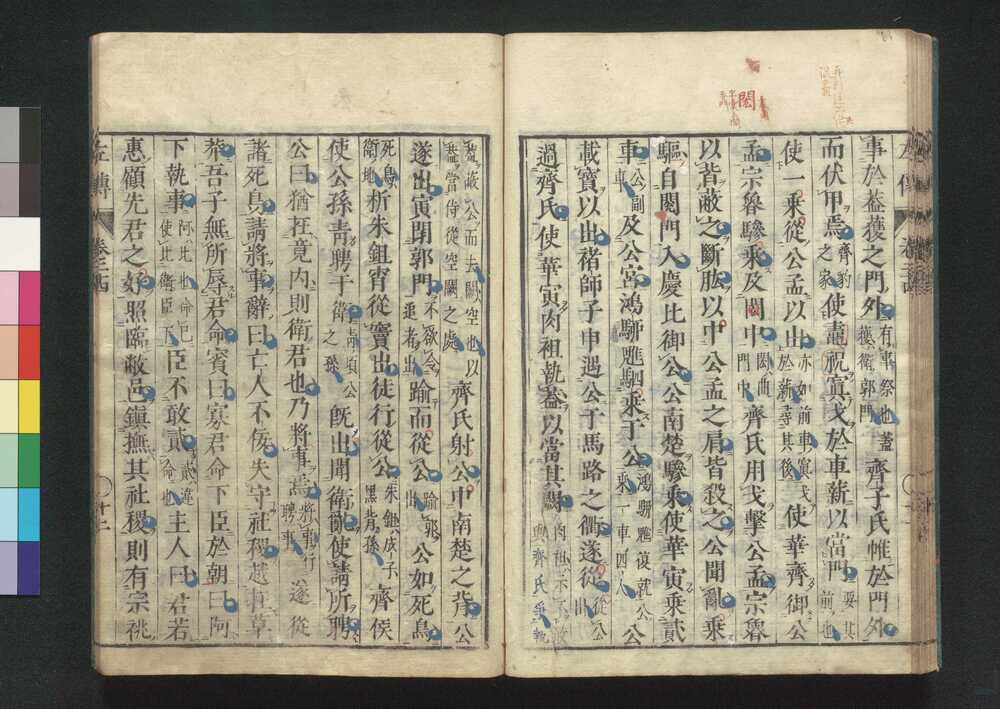 事於蓋獲之門外有事祭也蓋獲衛郭門齊子氏帷於門外
而伏甲焉齊豹之家使祝鼃寘戈於車薪以當門要其前也
使一乘從公孟以出亦如前車寘戈於薪尋其後使華齊御公
孟宗魯驂乘及閎中閎曲門中齊氏用戈擊公孟宗魯
以背蔽之斷肱以中公孟之肩皆殺之公聞亂乘
驅自閱門入慶比御公公南楚驂乘使華寅乘貳
車公副車及公宮鴻駵魋駟乘于公鴻駵魋復就公乘一車四人公
載寶以出褚師子申遇公于馬路之衢遂從從公出
過齊氏使華寅肉袒執蓋以當其闕
蓋蔽公而去闕空也以蓋當侍從空闕之處齊氏射公中南楚之背公
遂出寅閉郭門不欲令追者出踰而從公踰郭出公如死鳥
死鳥衛地析朱鉏宵從竇出徒行從公朱鉏成子黑背孫齊侯
使公孫青聘于衛青頃公之孫既出聞衛亂使請所聘
公曰猶在竟內則衛君也乃將事焉將事行聘事遂從
諸死鳥請將事辭曰亡人不佞失守社稷越在草
莽吾子無所辱君命賓曰寡君命下臣於朝曰阿
下執事阿比也命已使比衛臣下臣不敢貳貳違命也主人曰君若
惠顧先君之好照臨敝邑鎮撫其社稷則有宗祧
左傳
卷二十四
十二
閎